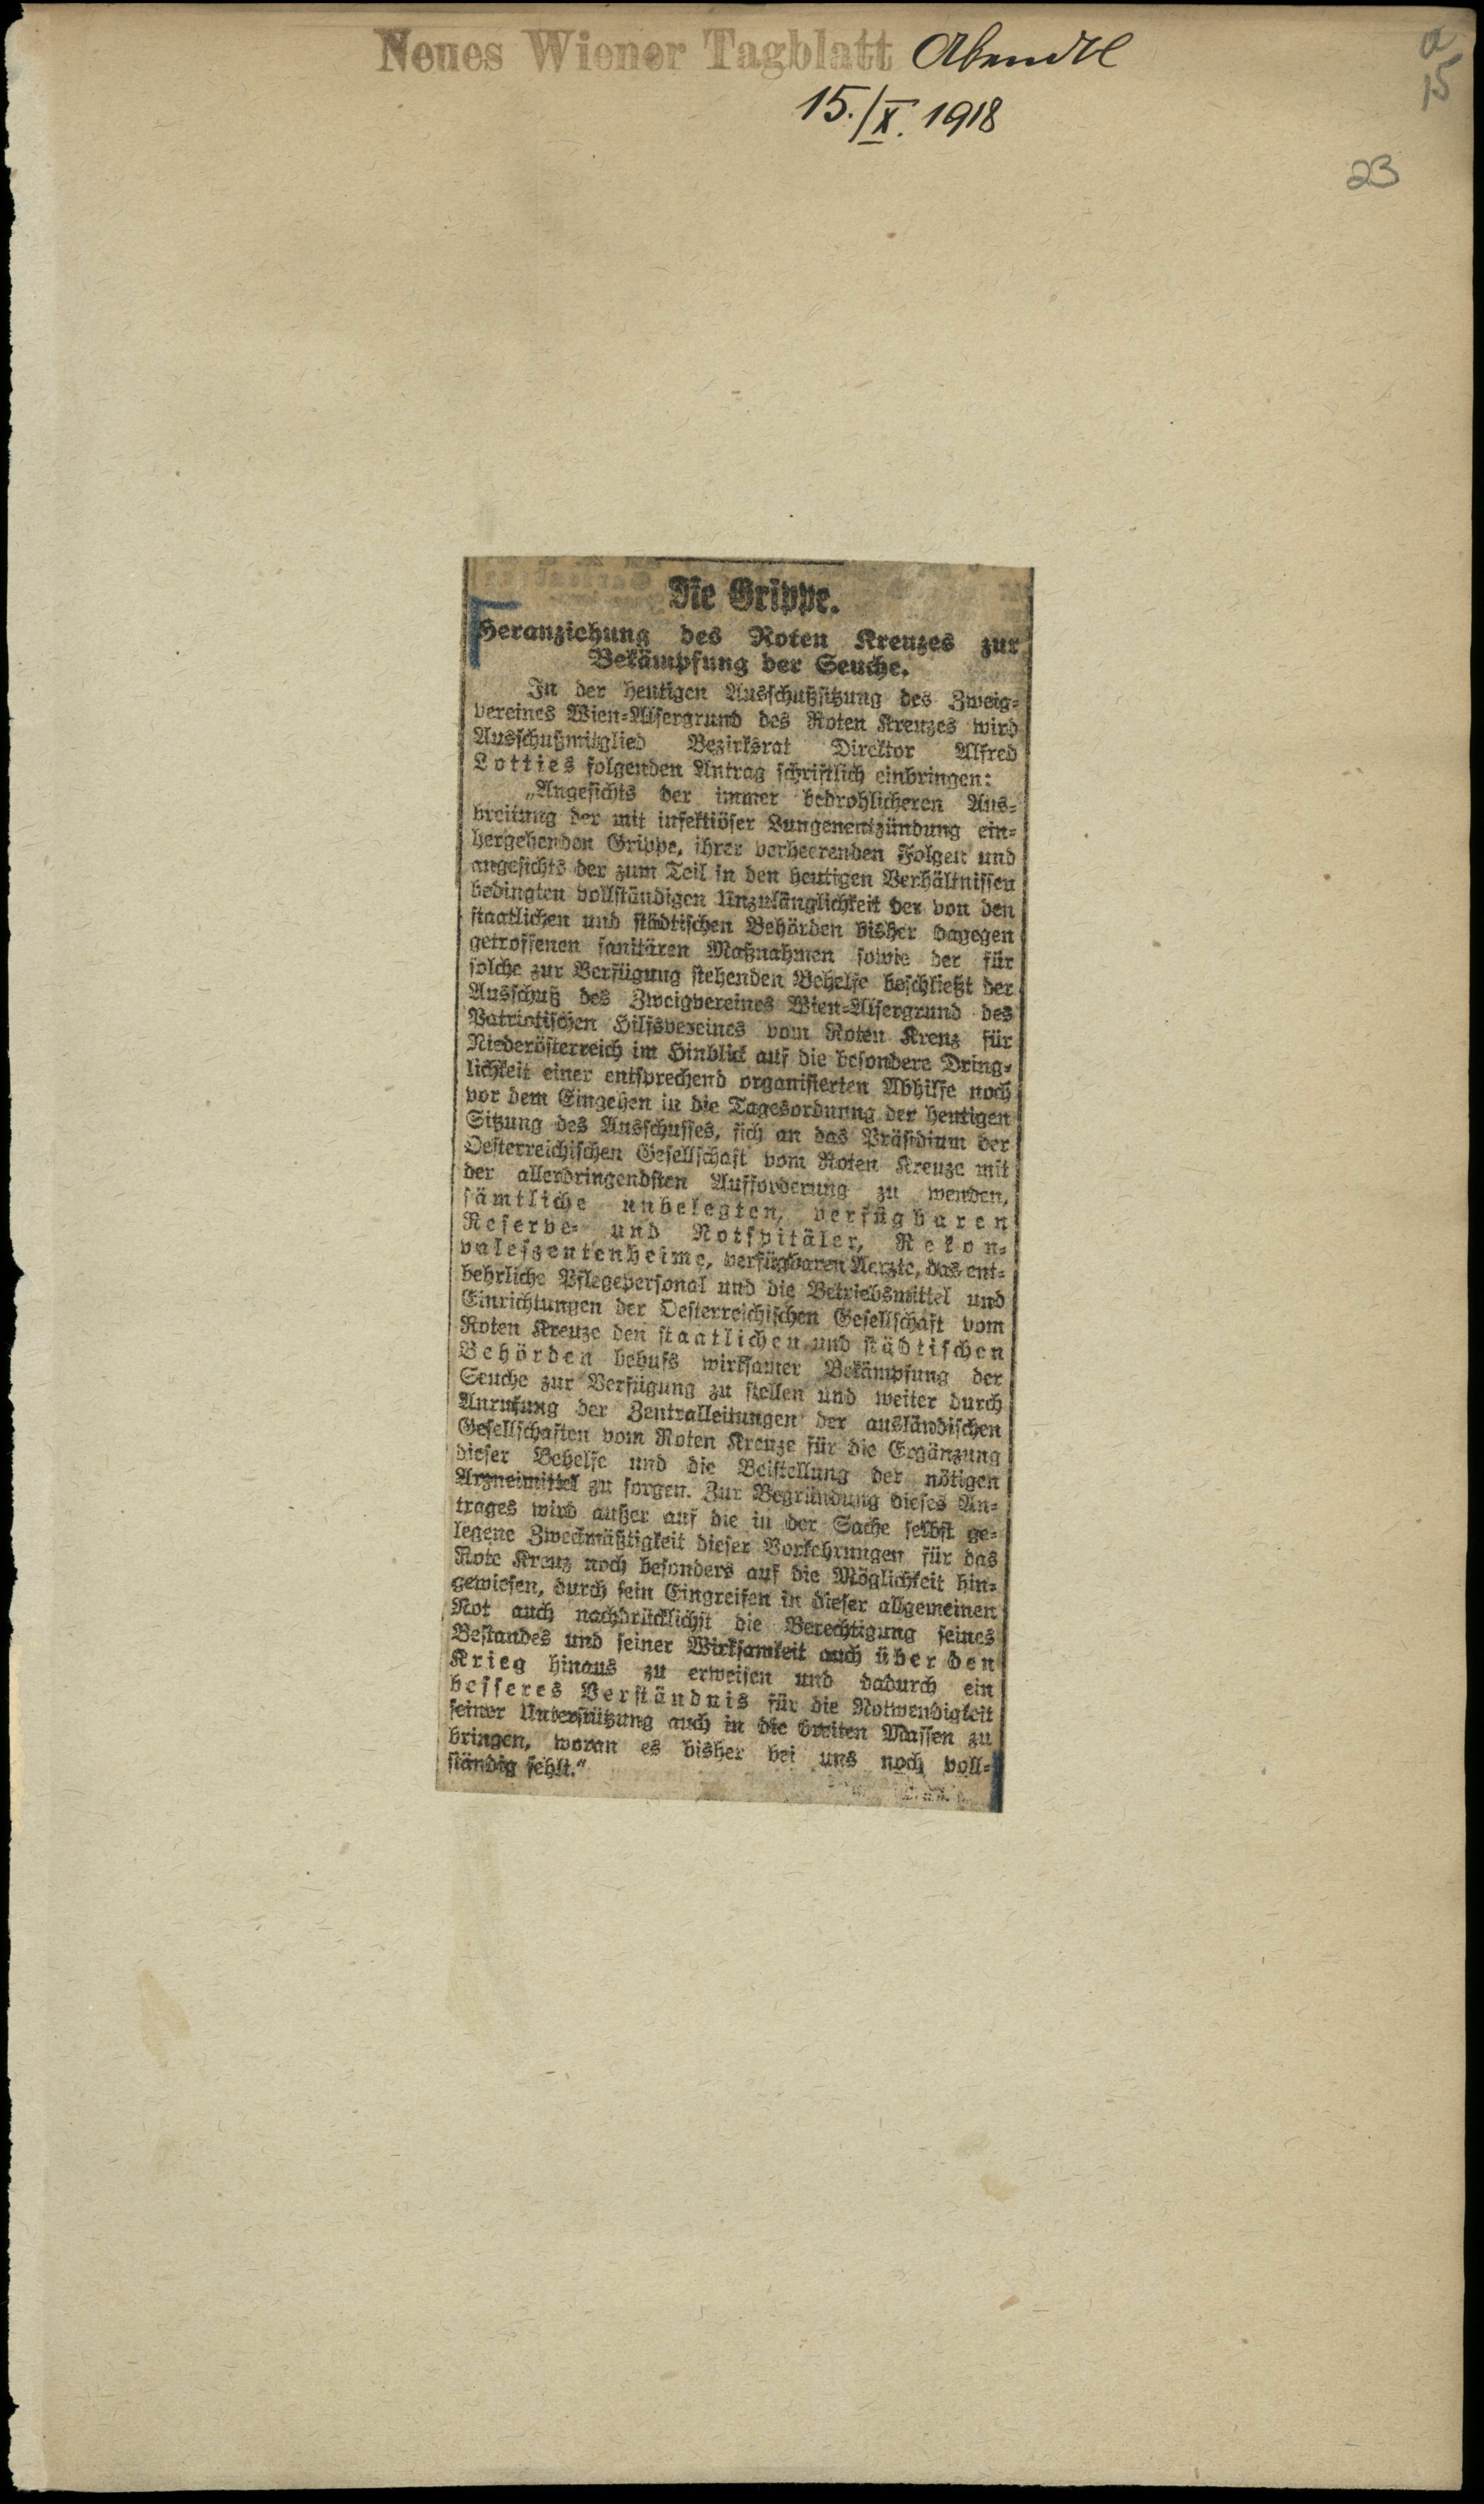 Neues Wiener Tagblatt Abendbl
15./X. 1918
a
15
23
Die Grippe.
Heranziehung des Roten Kreuzes zur
Bekämpfung der Seuche.
In der heutigen Ausschußsitzung des Zweig-
vereines Wien-Alsergrund des Roten Kreuzes wird
Ausschußmitglied Bezirksrat Direktor Alfred
Lotties folgenden Antrag schriftlich einbringen:
„Angesichts der immer bedrohlicheren Aus-
breitung der mit infektiöser Lungenentzündung ein-
hergehenden Grippe, ihrer verheerenden Folgen und
angesichts der zum Teil in den heutigen Verhältnissen
bedingten vollständigen Unzulänglichkeit der von den
staatlichen und städtischen Behörden bisher dagegen
getroffenen sanitären Maßnahmen sowie der für
solche zur Verfügung stehenden Behelfe beschließt der
Ausschuß des Zweigvereines Wien-Alsergrund des
Patriotischen Hilfsvereines vom Roten Kreuz für
Niederösterreich im Hinblick auf die besondere Dring-
lichkeit einer entsprechend organisierten Abhilfe noch
vor dem Eingehen in die Tagesordnung der heutigen
Sitzung des Ausschusses, sich an das Präsidium der
Oesterreichischen Gesellschaft vom Roten Kreuze mit
der allerdringendsten Aufforderung zu wenden,
sämtliche unbelegten, verfügbaren
Reserve- und Notspitäler, Rekon-
valeszentenheime, verfügbaren Aerzte, das ent-
behrliche Pflegepersonal und die Betriebsmittel und
Einrichtungen der Oesterreichischen Gesellschaft vom
Roten Kreuze den staatlichen und städtischen
Behörden behufs wirksamer Bekämpfung der
Seuche zur Verfügung zu stellen und weiter durch
Anrufung der Zentralleitungen der ausländischen
Gesellschaften vom Roten Kreuze für die Ergänzung
dieser Behelfe und die Beistellung der nötigen
Arzneimittel zu sorgen. Zur Begründung dieses An-
trages wird außer auf die in der Sache selbst ge-
legene Zweckmäßtigkeit dieser Vorkehrungen für das
Rote Kreuz noch besonders auf die Möglichkeit hin-
gewiesen, durch sein Eingreifen in dieser allgemeinen
Not auch nachdrücklichst die Berechtigung seines
Bestandes und seiner Wirksamkeit auch über den
Krieg hinaus zu erweisen und dadurch ein
besseres Verständnis für die Notwendigkeit
seiner Unterstützung auch in die breiten Massen zu
bringen, woran es bisher bei uns noch voll-
ständig fehlt.“